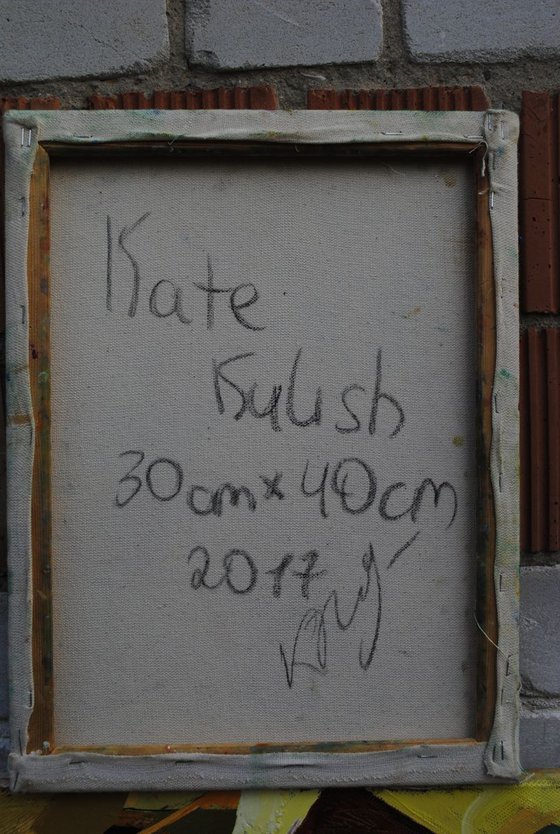 Kate
Kulish
30cm×40cm
2017